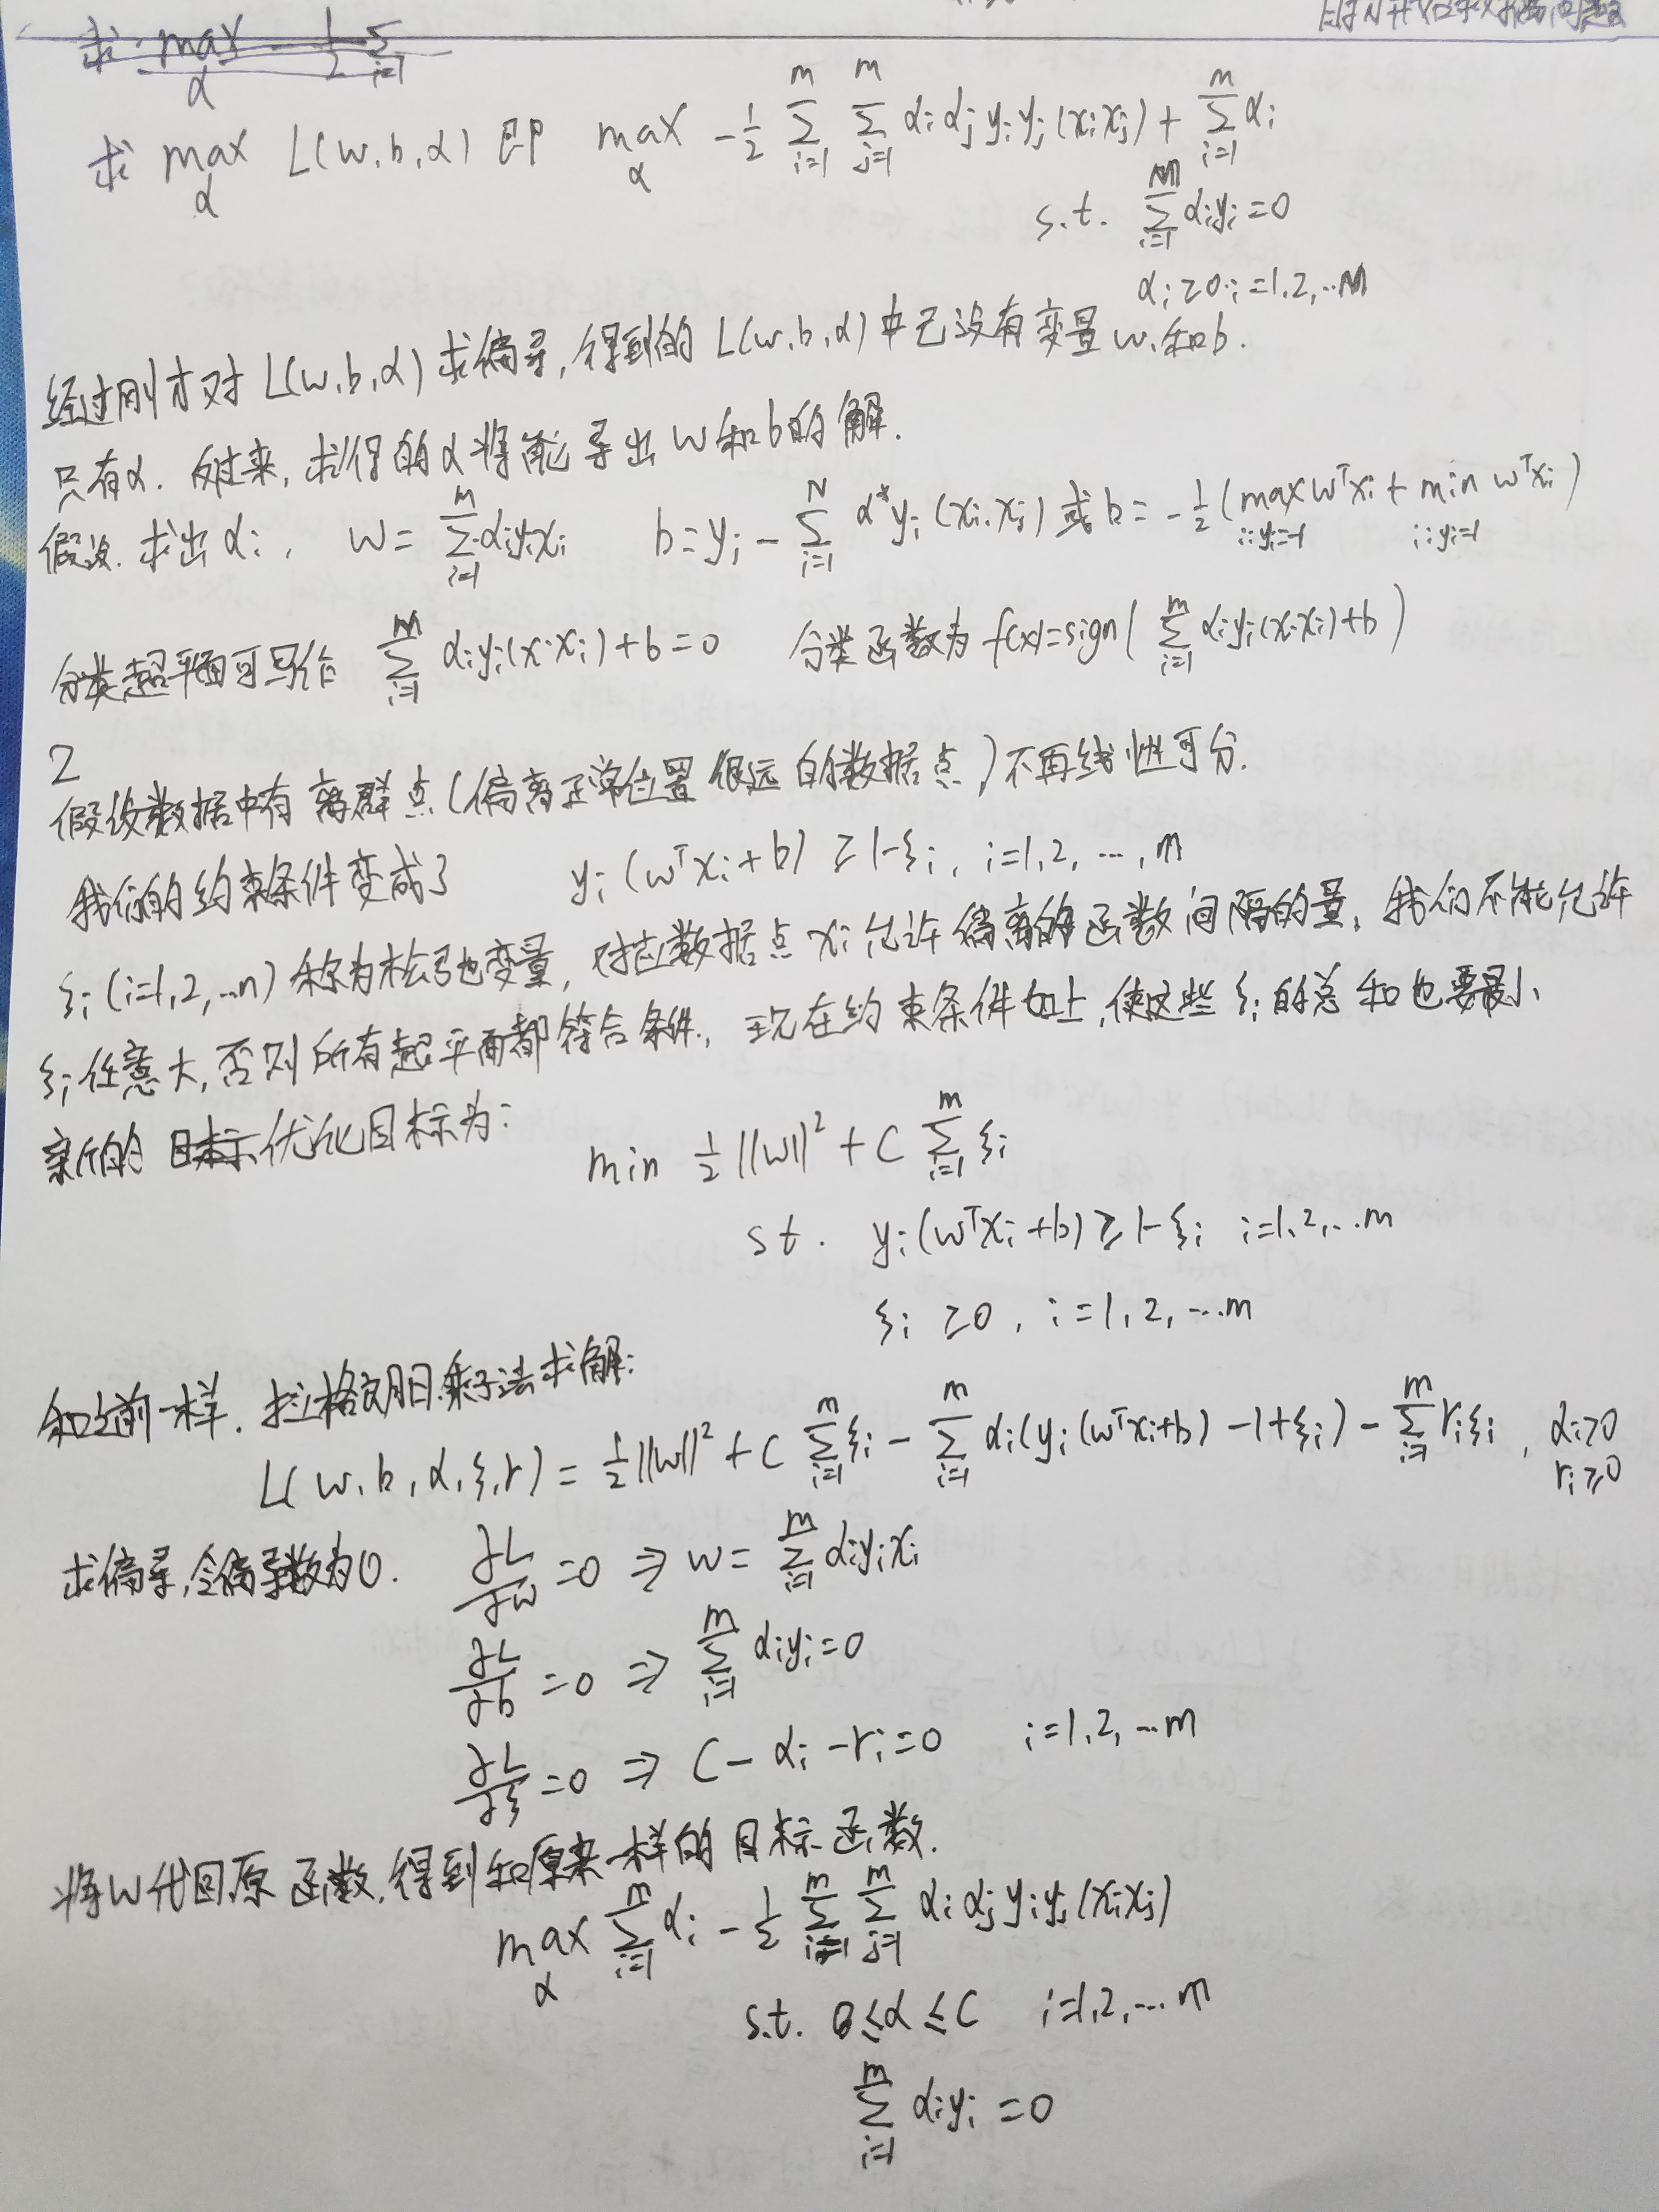 求 max_α -1/2 Σ_{i=1}
求 max_α L(w,b,α) 即 max_α -1/2 Σ_{i=1}^m Σ_{j=1}^m αiαjyiyj(xixj) + Σ_{i=1}^m αi
s.t. Σ_{i=1}^m αiyi=0
αi≥0 i=1,2,…m
经过刚才对 L(w,b,α) 求偏导,得到的 L(w,b,α) 中已没有变量 w,和b.
只有α. 反过来,求得的α将能导出w和b的解.
假设.求出αi, w=Σ_{i=1}^m αiyixi b=yj-Σ_{i=1}^N α*yi(xi.xj) 或b=-1/2(max_{i:yi=-1} w^Txi + min_{i:yi=1} w^Txi)
分类超平面可写作 Σ_{i=1}^m αiyi(x·xi)+b=0 分类函数为 f(x)=sign(Σ_{i=1}^m αiyi(x·xi)+b)
2
假设数据中有离群点(偏离正常位置很远的数据点)不再线性可分.
我们的约束条件变成了 yi(w^Txi+b)≥1-ξi, i=1,2,…,m
ξi(i=1,2,…n)称为松弛变量,对应数据点xi允许偏离的函数间隔的量,我们不能允许
ξi任意大,否则所有超平面都符合条件,现在约束条件如上,使这些ξi的总和也要最小
新的 目标 优化目标为:
min 1/2||w||^2 + C Σ_{i=1}^m ξi
st. yi(w^Txi+b)≥1-ξi i=1,2,…m
ξi≥0, i=1,2,…m
和之前一样.拉格朗日乘子法求解:
L(w,b,α,ξ,r)=1/2||w||^2+C Σ_{i=1}^m ξi - Σ_{i=1}^m αi(yi(w^Txi+b)-1+ξi) - Σ_{i=1}^m riξi, αi≥0
ri≥0
求偏导,令偏导数为0. ∂L/∂w=0 ⇒ w=Σ_{i=1}^m αiyixi
∂L/∂b=0 ⇒ Σ_{i=1}^m αiyi=0
∂L/∂ξ=0 ⇒ C-αi-ri=0 i=1,2,…m
将w代回原函数,得到和原来一样的目标函数.
max_α Σ_{i=1}^m αi - 1/2 Σ_{i=1}^m Σ_{j=1}^m αiαjyiyj(xixj)
s.t. 0≤α≤C i=1,2,…m
Σ_{i=1}^m αiyi=0